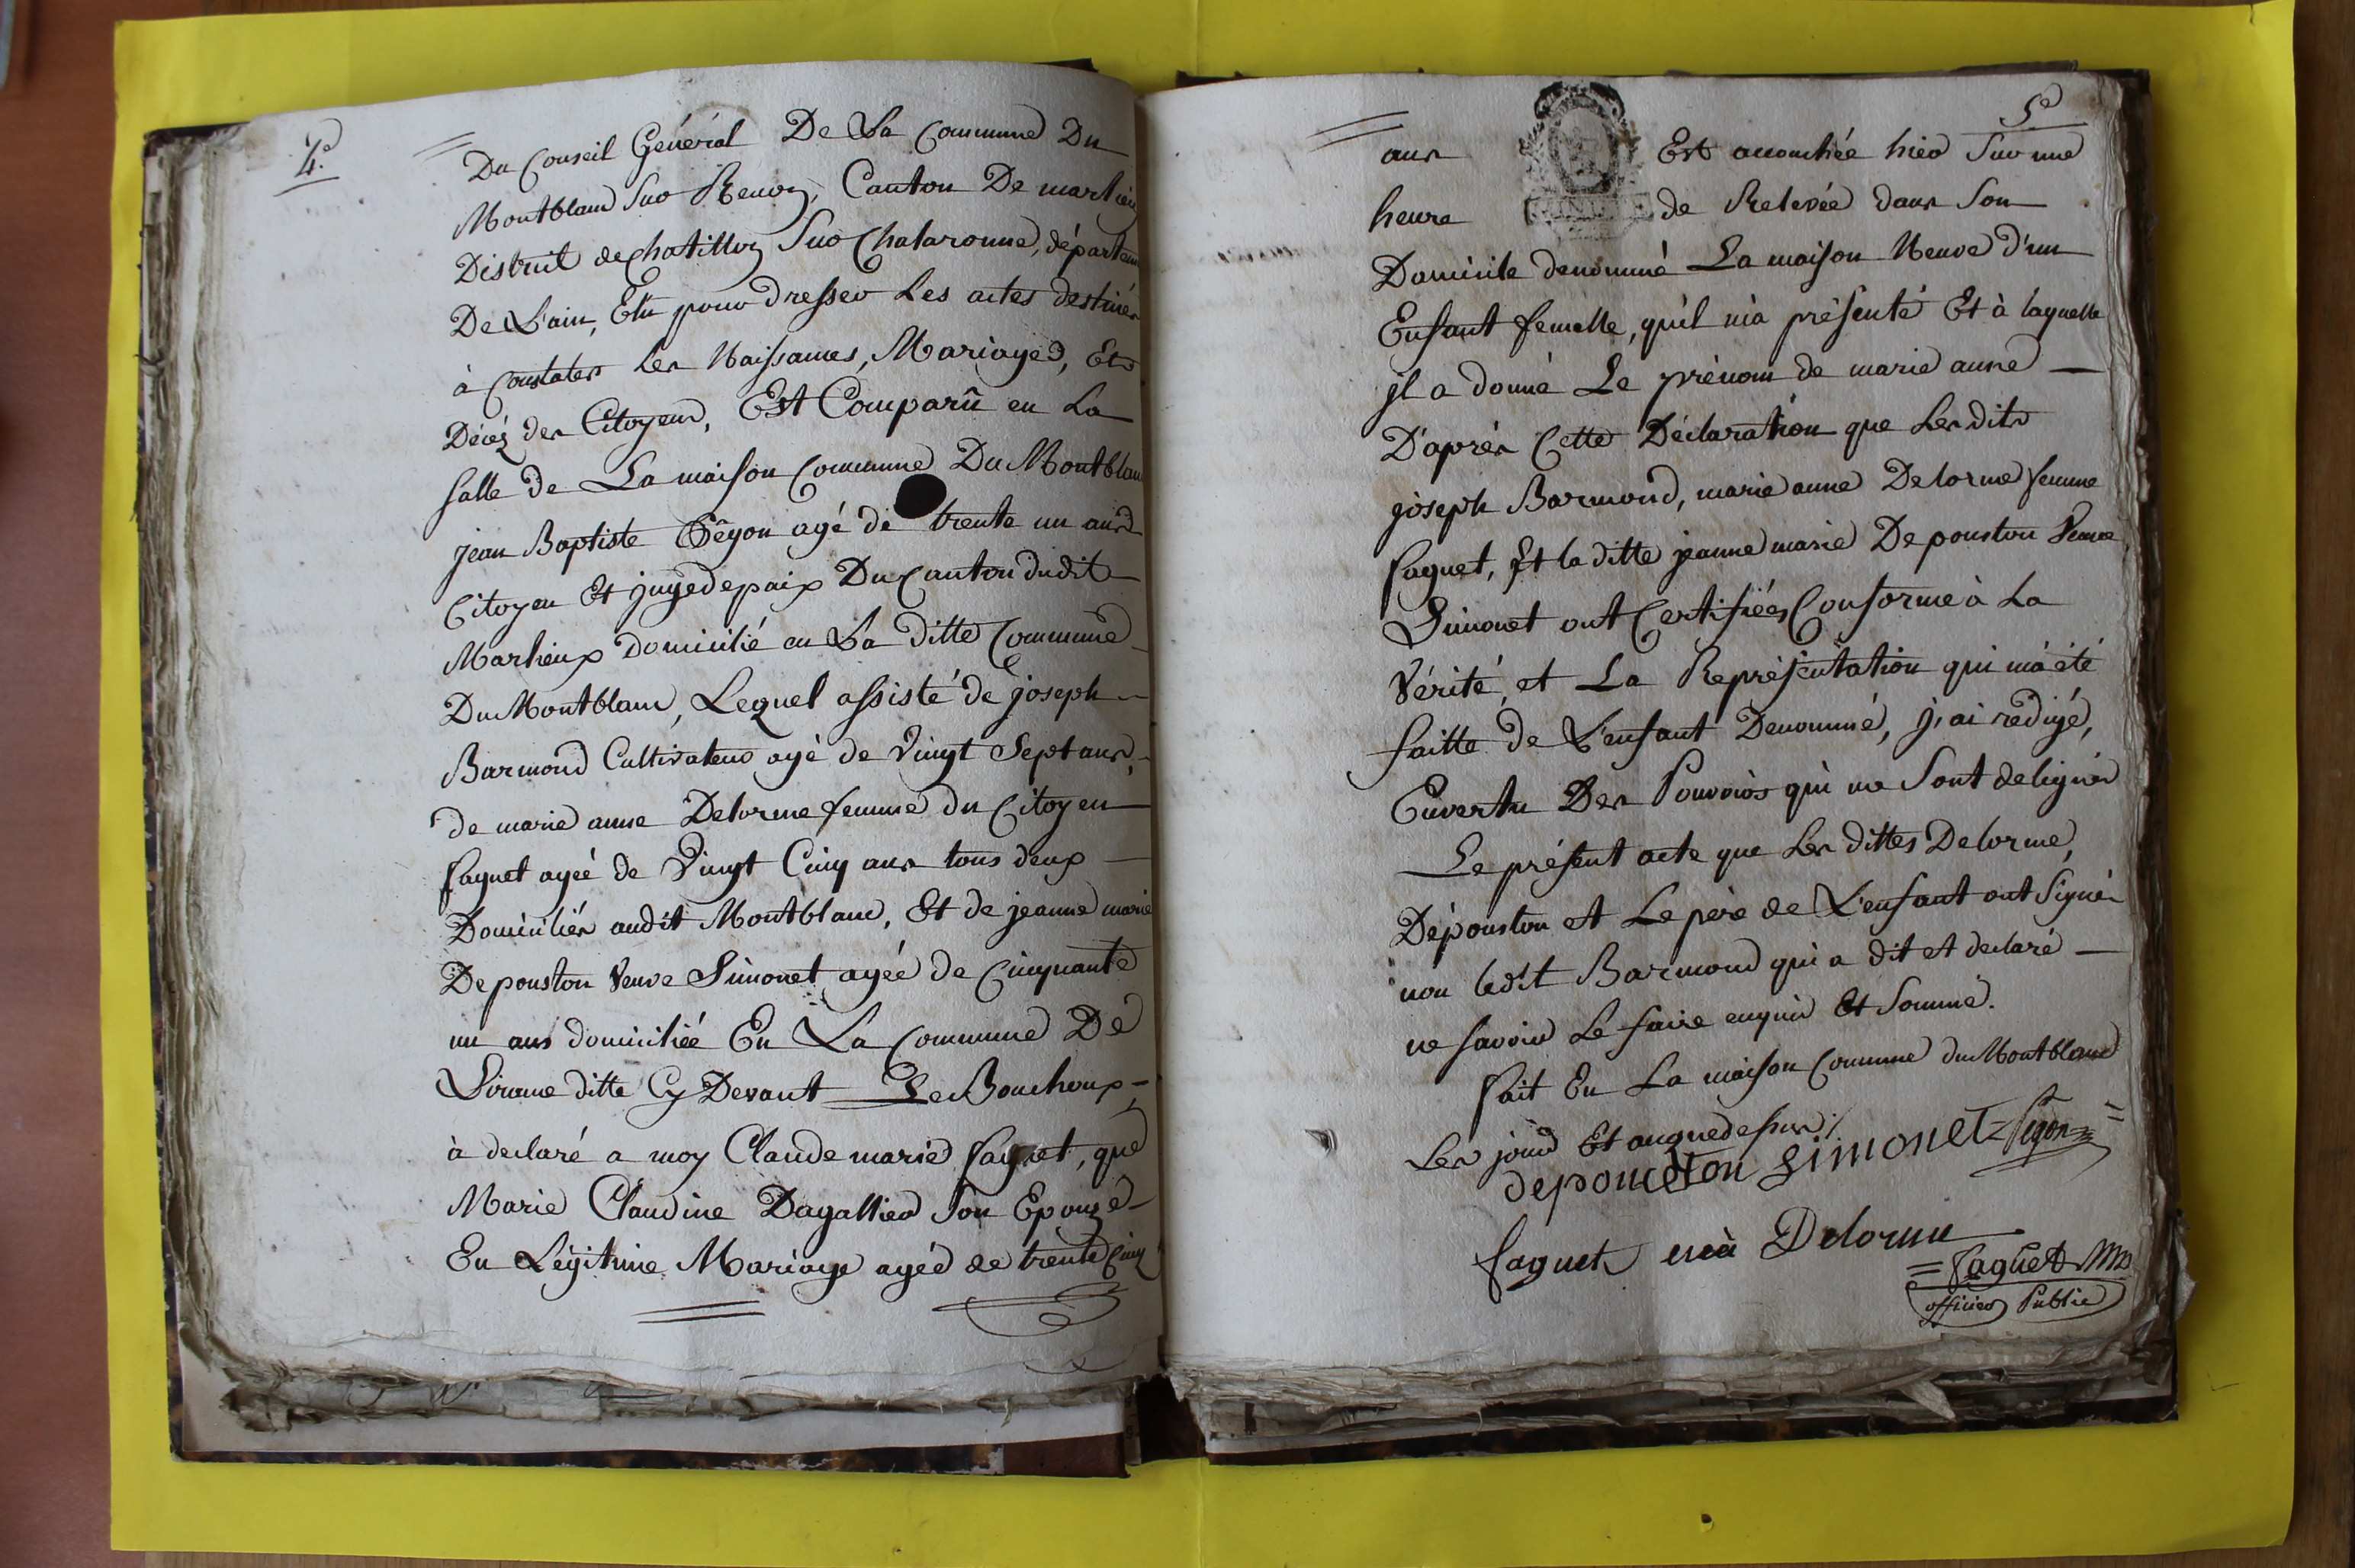 4.e
Du Conseil Général De La Commune Du
Montblanc Sur Renon, Canton De marlieu
District de chatillon Sur Chalaronne, départem
De L'ain, Elu pour dresser Les actes destinés
à Constater les Naissances, Mariages, Et
Décéz des Citoyens, Est Comparû en La
salle de La maison Commune Du Montblanc
jean Baptiste agé de trente un ans
Citoyen Et juge de paix Du Canton dudit
Marlieux domicilié en La ditte Commune
Du Montblanc, Lequel assisté de joseph
Barmond Cultivateur agé de Vingt Sept ans,
de marie anne Delorme femme du Citoyen
faguet agée de Vingt Cinq ans tous deux
Domiciliés audit Montblanc, Et de jeanne marie
Depouston Veuve Simonet agée de Cinquante
un ans domiciliée En La Commune De
ditte Cy Devant Le Bouchoux,
à declaré a moy Claude marie faguet, que
Marie Claudine Dagallier Son Epouze
En Légitime Mariage agée de trente Cinq
5.e
ans Est accouchée hier Sur une
heure de Relevée dans Son
Domicile denommé La maison Neuve d'un
Enfant femelle, qu'il m'a présenté Et à laquelle
jl a donné Le prénom de marie anne
D'aprés Cette Déclaration que Les dits
joseph Barmond, marie anne Delorme femme
faguet, Et la ditte jeanne marie Depouston Veuve
Simonet ont Certifiées Conforme à La
Vérité, et La Représentation qui m'a été
faitte de L'enfant Denommé, j'ai redigé,
En vertu Des Pouvoirs qui me Sont deligués
Le présent acte que Les dittes Delorme,
Dépouston et Le pere de L'enfant ont Signés
non ledit Barmond qui a dit et declaré
ne savoir Le faire enquis Et Sommé.
fait En La maison Commune du Montblanc
Les jours Et an que dessus
depouston simonet
faguet née Delorme
faguet
officier Public